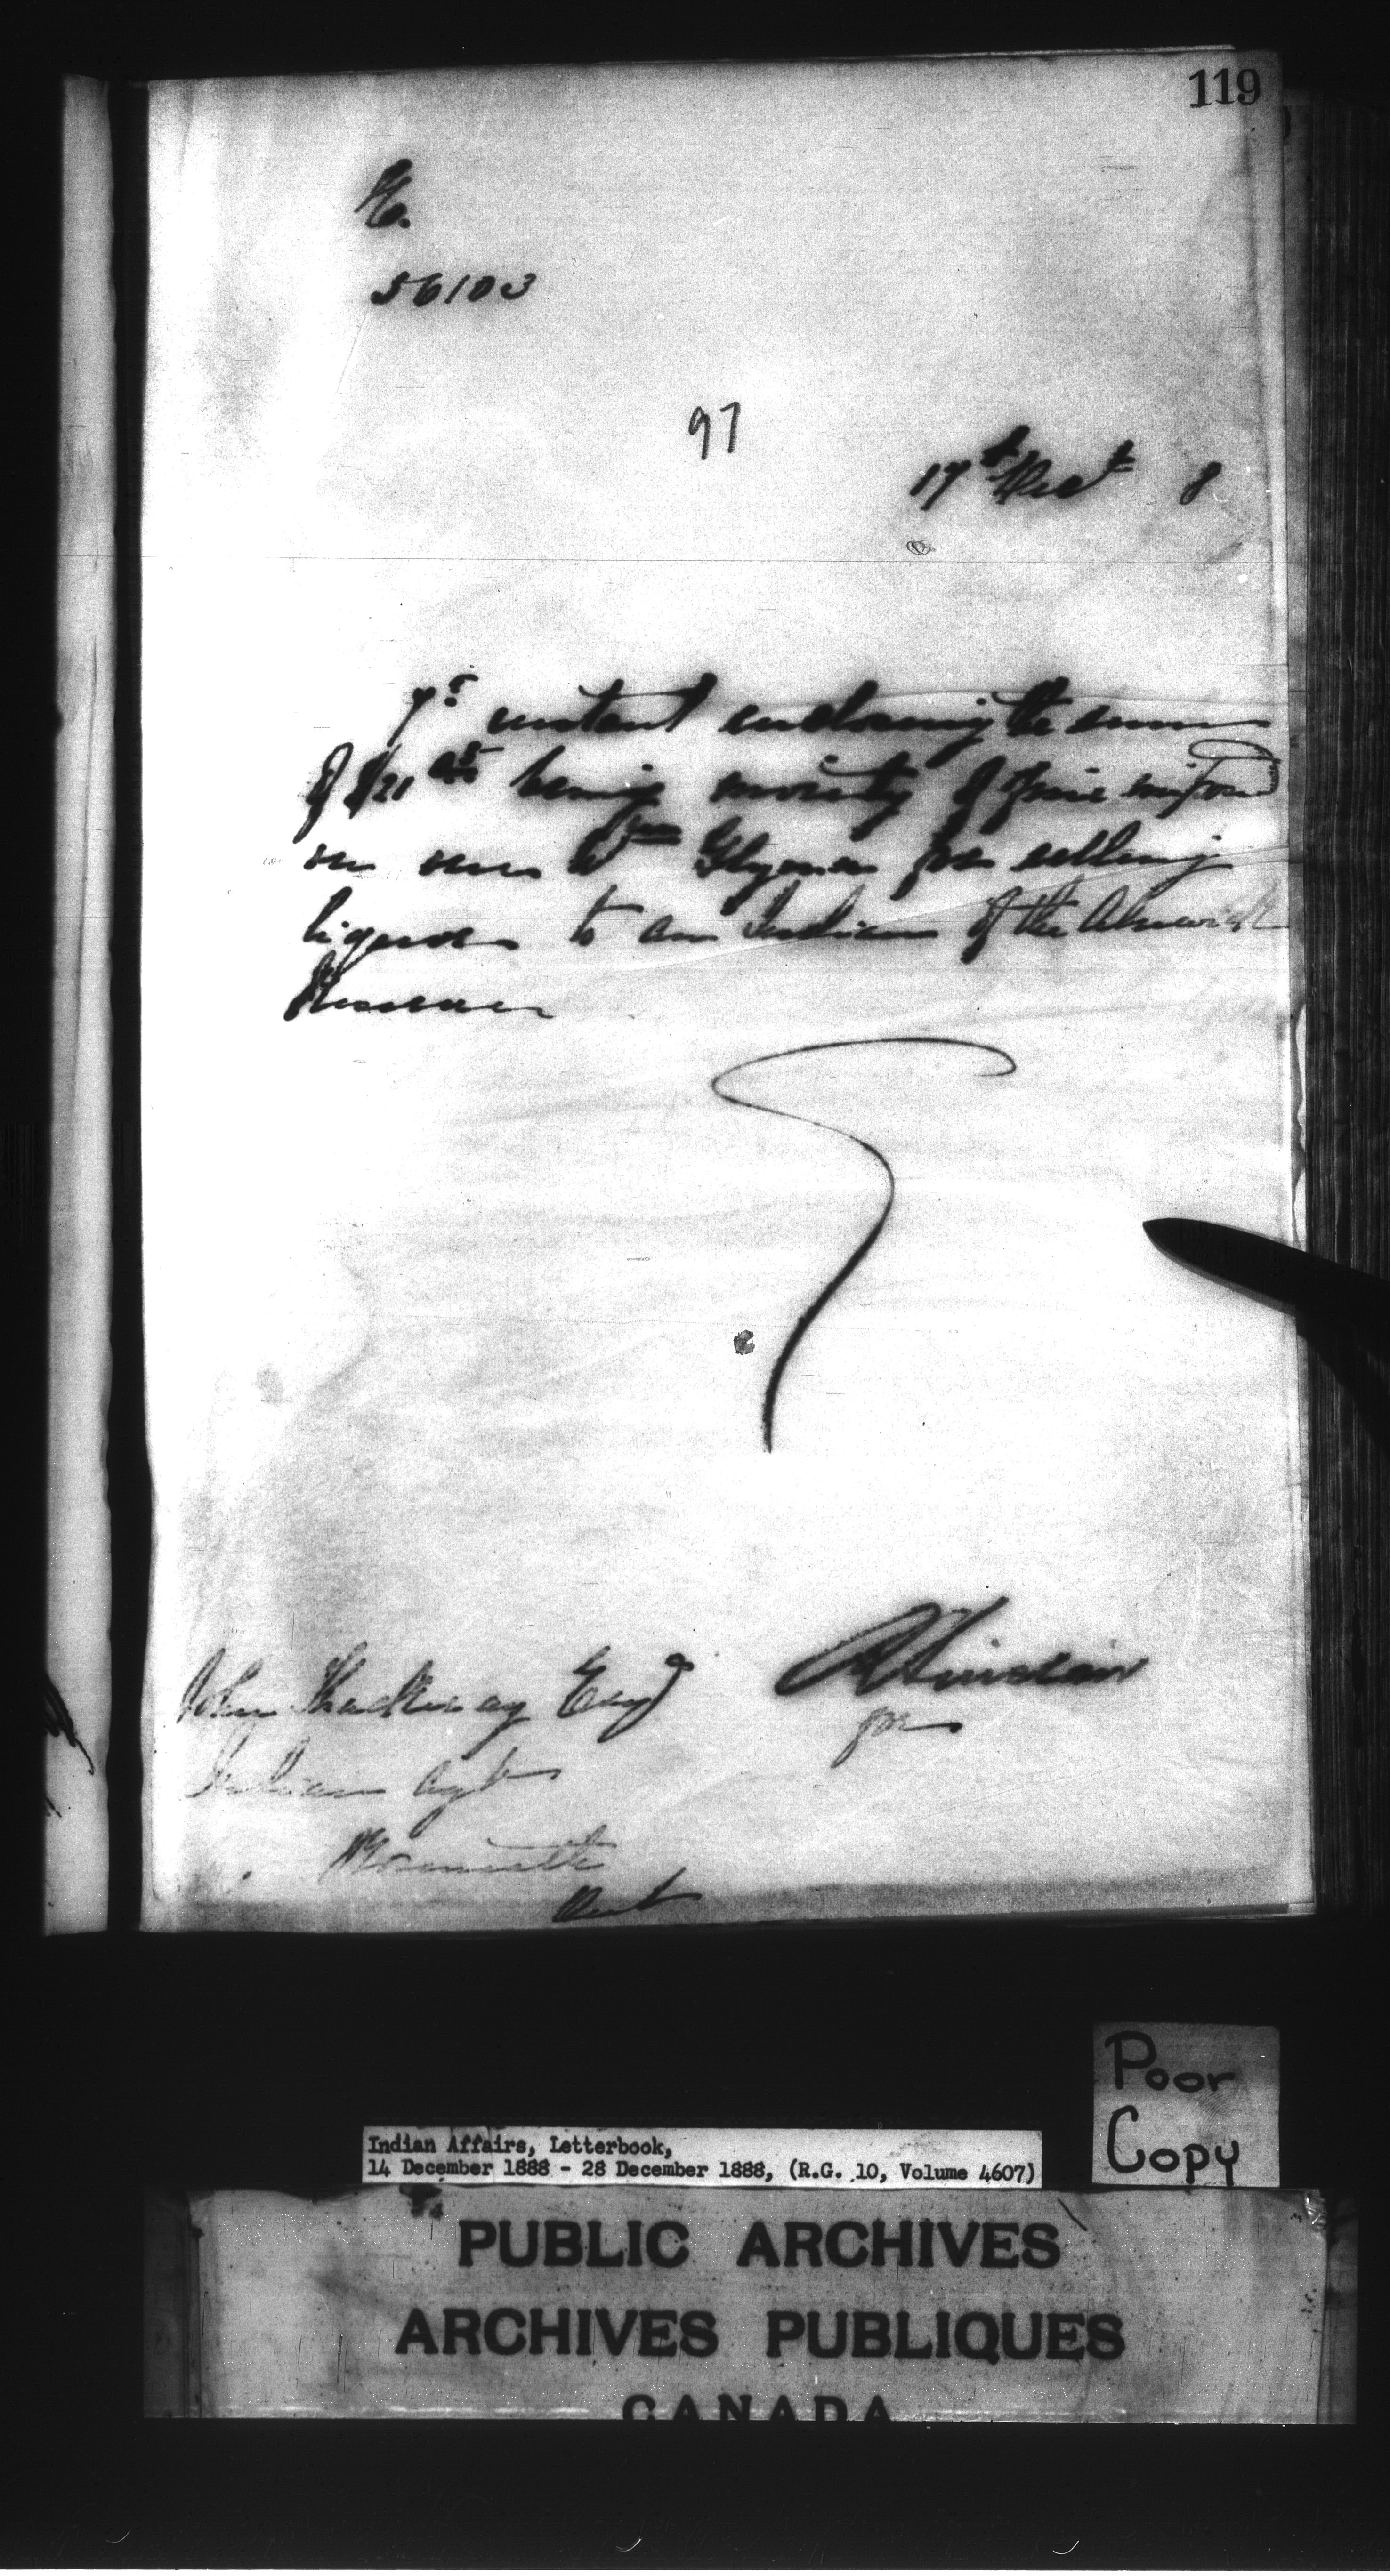 119
56103
97
17th Decr 8
7th instant enclosing the sum
of $21 being moiety of fine imposed
on one Wm Glynn for selling
liquor to an Indian of the Alnwick
Reserve
R Sinclair
for
John Thackeray Esqr
Indian Agt
Roseneath
Ont
Poor
Copy
Indian Affairs, Letterbook,
14 December 1888 - 28 December 1888, (R.G. 10, Volume 4607)
PUBLIC ARCHIVES
ARCHIVES PUBLIQUES
CANADA